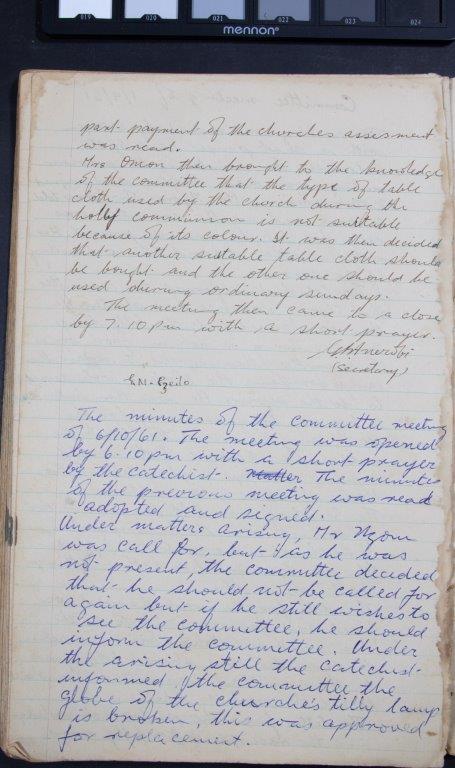 019 020 021 022 023 024
mennon
part payment of the churches assesment
was read.
Mrs Onion then brought to the knowledge
of the committee that the type of table
cloth used by the church during the
holly communion is not suitable
because of its colour. It was then decided
that another suitable table cloth should
be bought and the other one should be
used during ordinary sundays.
The meeting then came to a close
by 7.10pm with a short prayer.
(Secretary)
The minutes of the committee meeting
of 6/10/61. The meeting was opened
by 6.10pm with a short prayer
by the catechist. Matter The minutes
of the previous meeting was read
adopted and signed.
Under matters arising, Mr Ngou
was call for, but as he was
not present, the committee decided
that he should not be called for
again but if he still wishes to
see the committee, he should
inform the committee. Under
the arising still the catechist
informed the committee the
globe of the churche's tilly lamp
is broken, this was approved
for replacement.